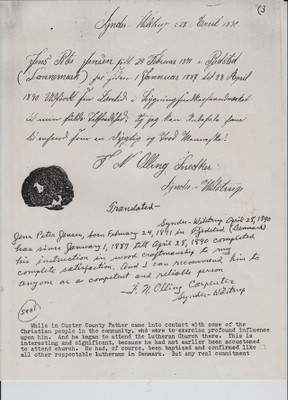 (3
Sønder Wilstrup d 28 April 1890.
Jens Peter Jensen født 24 Februar 1871 i Fjodsted
(Dannemark) har siden 1 Januar 1889 til 28 April
1890
til min fulde Tilfredshed. Og jeg kan Anbefale ham
til enhver som en Dygtig og Brav Menneske.
F N Olling Snedker
Sønder-Wilstrup
Translated—
Synder-Wilstrup April 28, 1890
Jens Peter Jensen, born February 24, 1871 in Fjodsted (Denmark)
has since January 1, 1889 till April 28, 1890 completed
his instruction in wood craftmanship to my
complete satisfaction. And I can recommend him to
anyone as a competent and reliable person
— F. N. Olling Carpenter
Synder-Wilstrup
(seal)
While in Custer County Father came into contact with some of the
Christian people in the community, who were to exercise profound influence
upon him. And he began to attend the Lutheran Church there. This is
interesting and significant, because he had not earlier been accustomed
to attend church. He had, of course, been baptized and confirmed like
all other respectable Lutherans in Denmark. But any real commitment